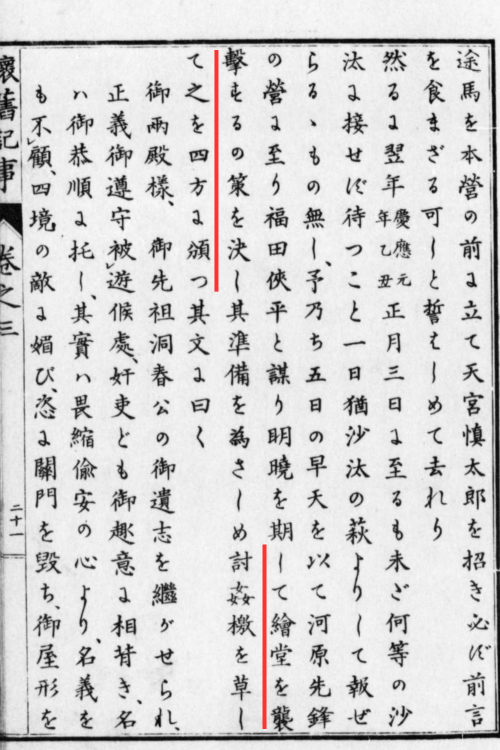 途馬を本營の前に立て天宮慎太郎を招き必ず前言
を食まざる可しと誓はしめて去れり
然るに翌年慶應元年乙丑正月三日に至るも未だ何等の沙
汰に接せず待つこと一日猶沙汰の萩よりして報ぜ
らるゝもの無し、予乃ち五日の早天を以て河原先鋒
の營に至り福田俠平と謀り明曉を期して繪堂を襲
擊するの策を決し其準備を為さしめ討姦檄を草し
て之を四方に頒つ其文に曰く
御兩殿樣、御先祖洞春公の御遺志を繼がせられ、
正義御遵守被遊候處、奸吏ども御趣意に相背き、名
ハ御恭順に托し、其實ハ畏縮偷安の心より、名義を
も不顧、四境の敵に媚び、恣に關門を毀ち、御屋形を
懷舊記事
卷之三
二十一